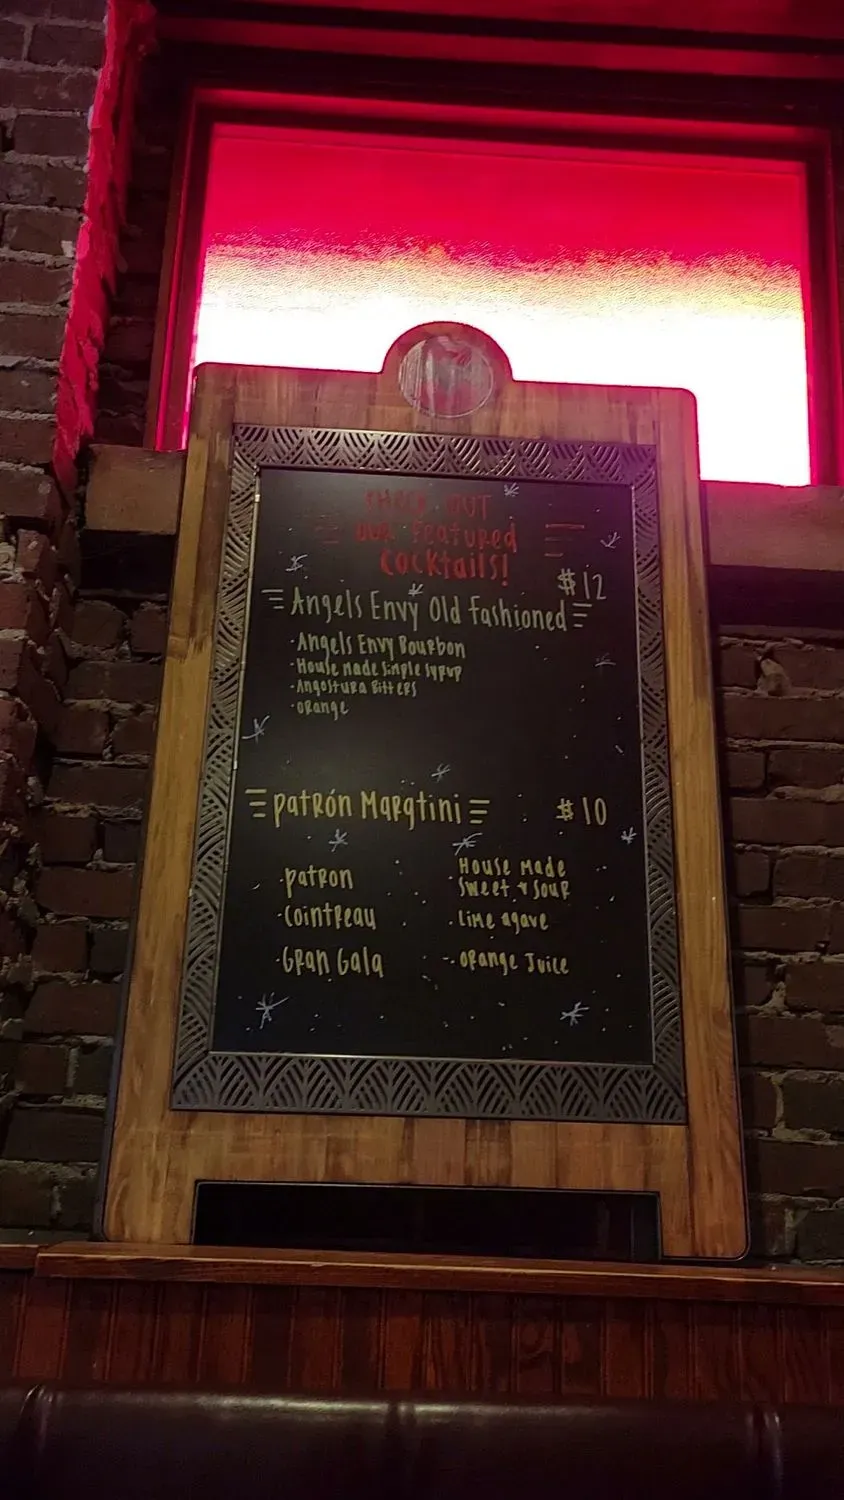 CHECK OUT
OUR FEATURED
COCKTAILS!
$12
Angels Envy Old Fashioned
·Angels Envy Bourbon
·House Made Simple Syrup
·Angostura Bitters
·Orange
Patrón Margtini $10
·Patron
·Cointreau
·Gran Gala
House Made
· Sweet + Sour
· Lime agave
· Orange Juice